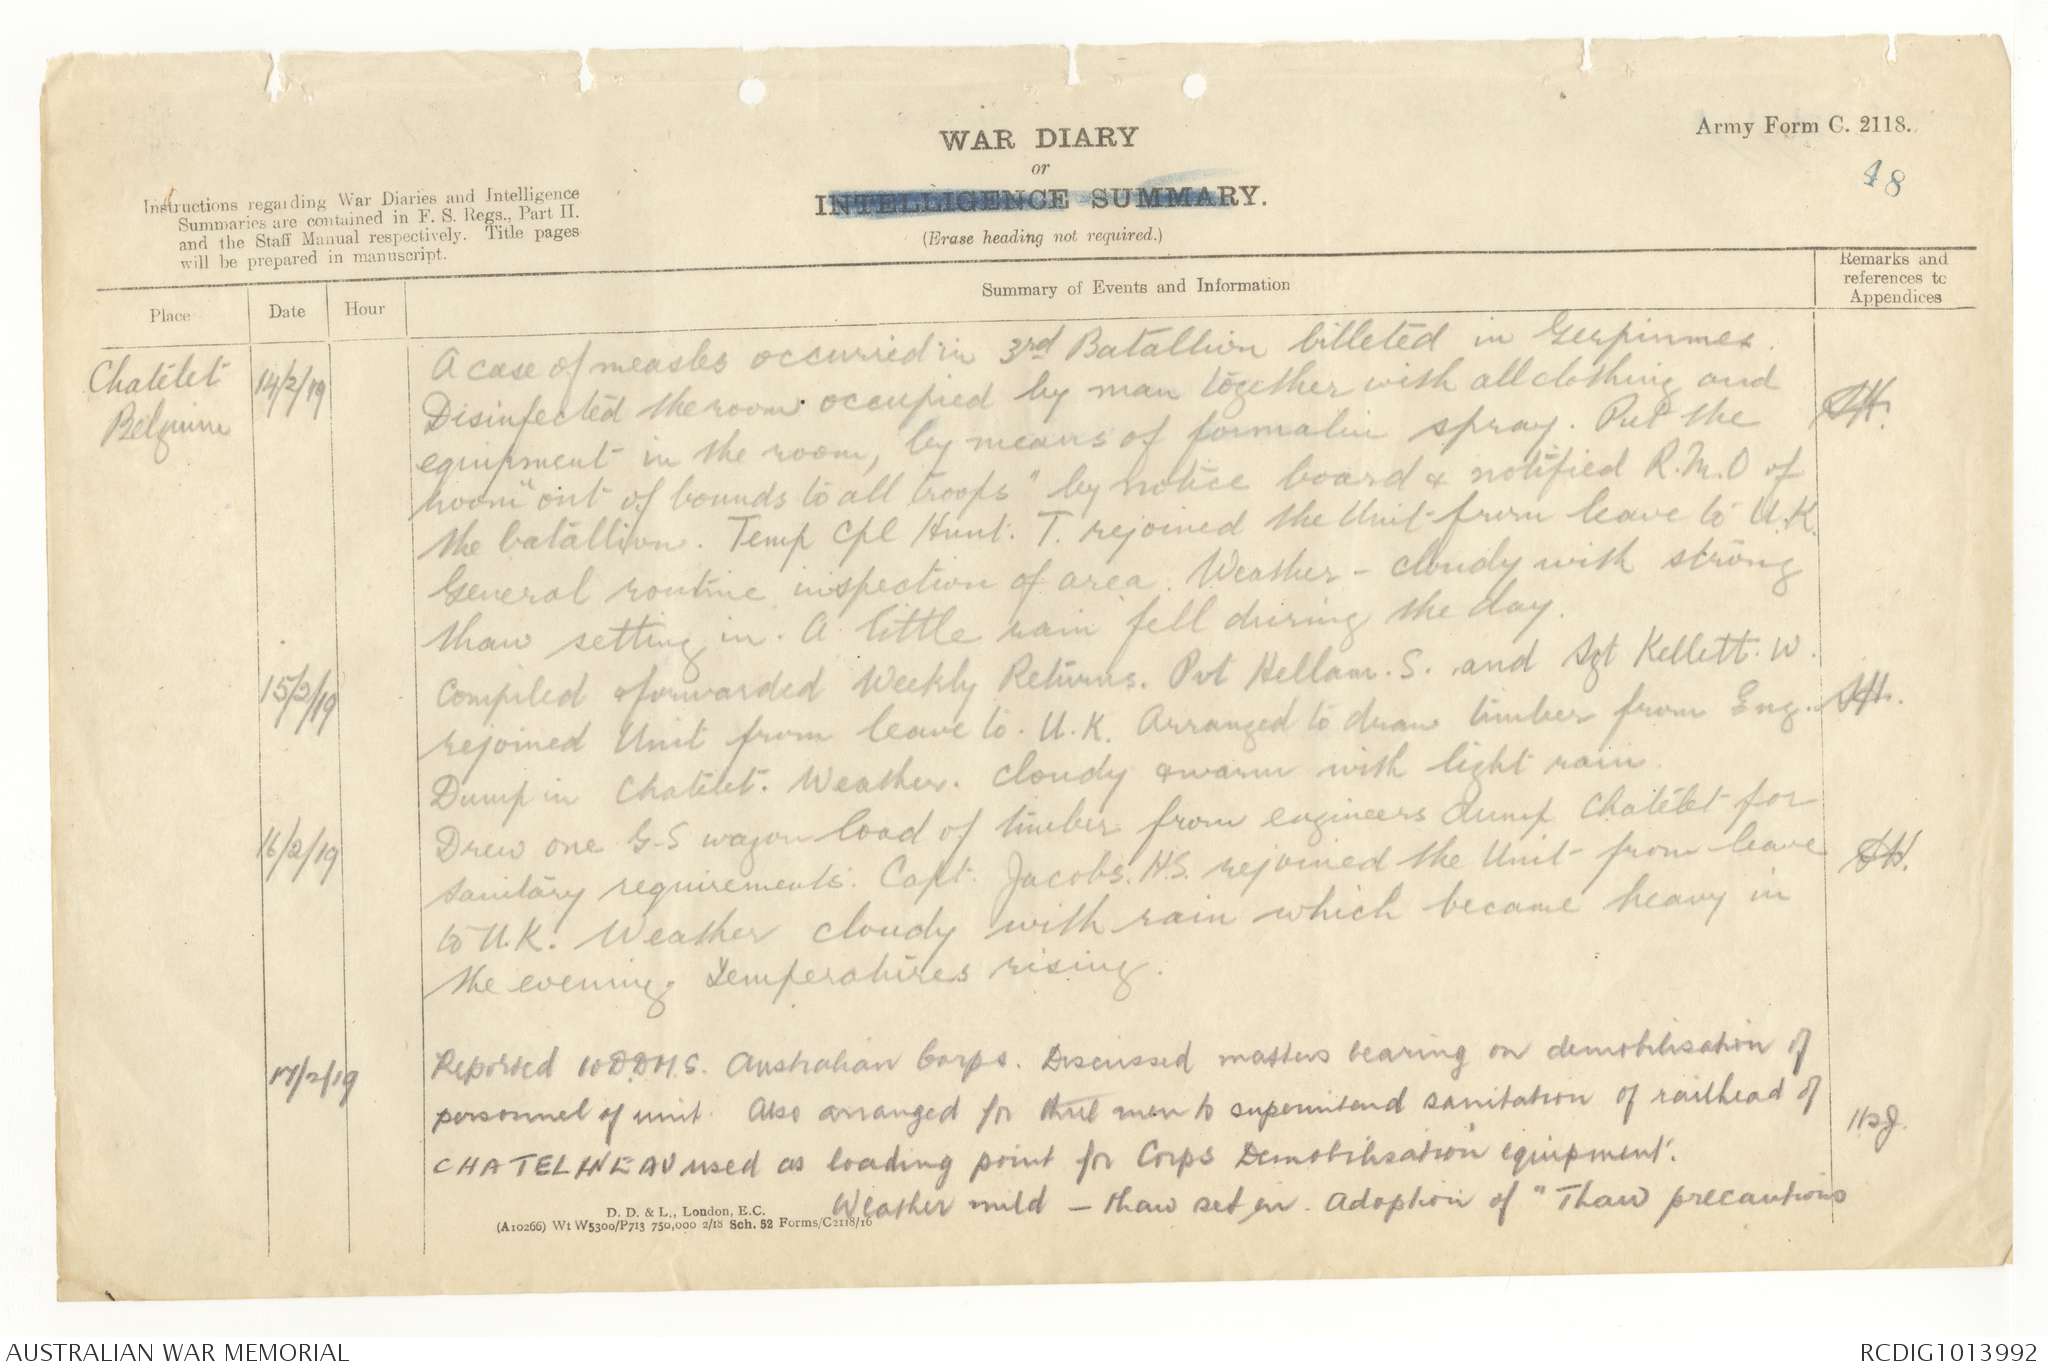 WAR DIARY
or
INTELLIGENCE SUMMARY.
(Erase heading not required.)
Army Form C. 2118.
48
Instructions regarding War Diaries and Intelligence
Summaries are contained in F. S. Regs., Part II.
and the Staff Manual respectively. Title pages
will be prepared in manuscript.
Place
Date
Hour
Summary of Events and Information
Remarks and
references to
Appendices
Chatelet
Belgium
14/2/19
A case of measles occurried in 3rd Batallion billeted in Gerpinnes.
Disinfected the room occupied by man together with all clothing and
equipment in the room, by means of formalin spray. Put the
room "out of bounds to all troops" by notice board & notified R.M.O of
the batallion. Temp Cpl Hunt. T. rejoined the Unit from leave to U.K.
General routine inspection of area. Weather - cloudy with strong
thaw setting in. A little rain fell during the day.
15/2/19
Compiled & forwarded Weekly Returns. Pvt Hellam. S. and Sgt Kellett. W.
rejoined Unit from leave to U.K. Arranged to draw timber from Eng.
Dump in Chatelet. Weather. Cloudy & warm with light rain.
16/2/19
Drew one G.S wagon load of timber from engineers dump Chatelet for
sanitary requirements. Capt. Jacobs. H.S. rejoined the Unit from leave
to U.K. Weather cloudy with rain which became heavy in
the evening. Temperatures rising.
17/2/19
Reported to D.D.M.S. Australian Corps. Discussed matters bearing on demobilisation of
personnel of unit. Also arranged for three men to superintend sanitation of railhead of
CHATELINEAU used as loading point for Corps Demobilisation equipment.
HSJ.
Weather mild - thaw set in. Adoption of "Thaw precautions
D. D. & L., London, E.C.
(A10266) Wt W5300/P713 750,000 2/18 Sch. 52 Forms/C2118/16
AUSTRALIAN WAR MEMORIAL
RCDIG1013992